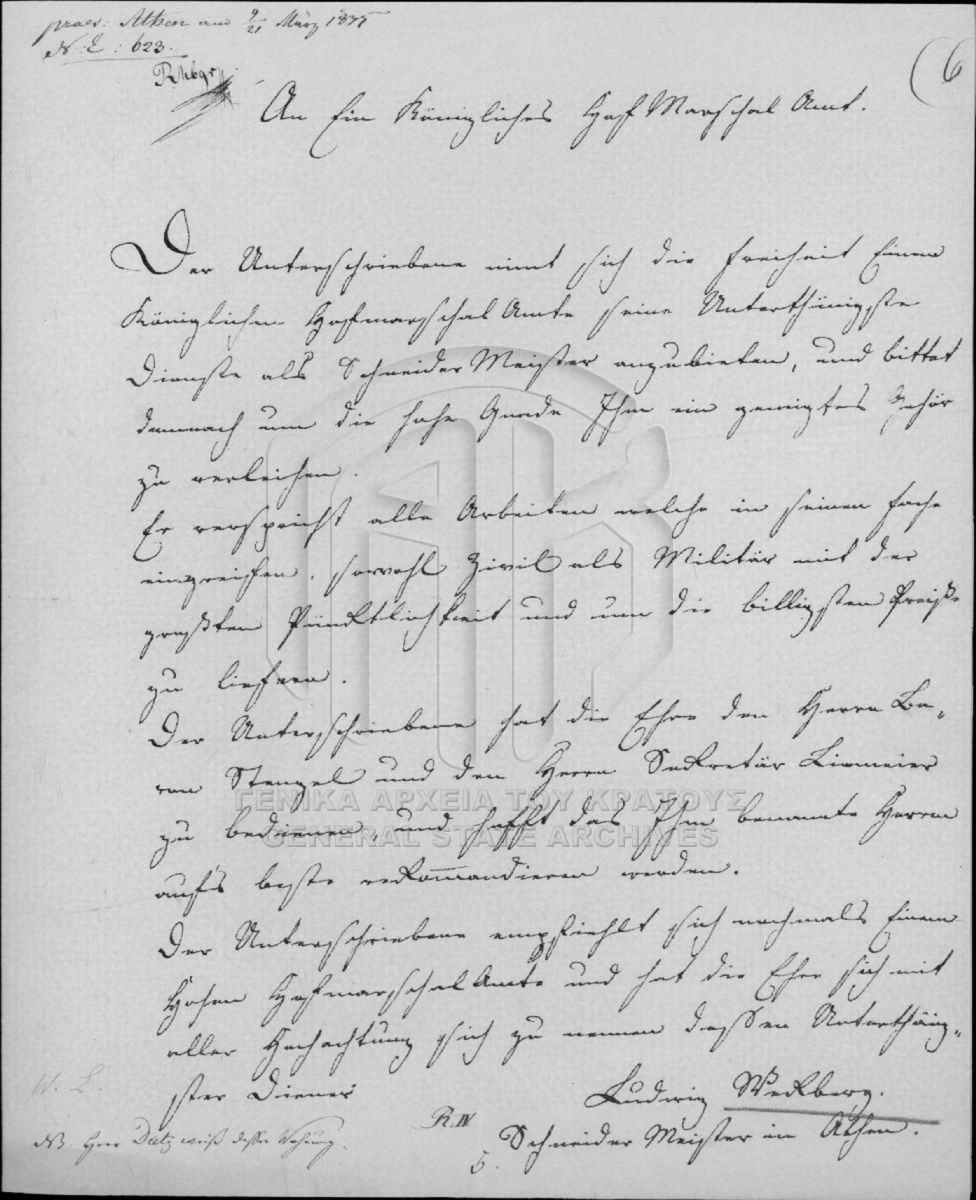 praes: Athen am 9/21 März 1835
N: E: 623.
(6
An Ein Königliches Hof Marschal Amt.
Der Unterschriebene nimt sich die Freiheit Einem
Königlichen Hofmarschal Amte seine Unterthänigste
Dienste als Schneider Meister anzubieten, und bittet
demnach um die hohe Gnade Ihm ein geneigtes Gehör
zu verleihen.
Er verspricht alle Arbeiten welche in seinen Fache
eingreiffen, sowohl Zivil als Militär mit der
größten Pünktlichkeit und um die billigsten Preiße
zu liefern.
Der Unterschriebene hat die Ehre den Herrn Ba„
ron Stengel und den Herrn Sekretär Linmeier
zu bedienen, und hofft das Ihm benannte Herrn
auf's beste rekommandieren werden.
Der Unterschriebene empfiehlt sich nochmals Einem
Hohen Hofmarschal Amte und hat die Ehre sich mit
aller Hochachtung sich zu nennen dessen Unterthänig„
ster Diener
Ludwig Wekberg.
Schneider Meister in Athen.
W. L.
R IV
NB. Herr Datz weiß dessen Wohnung.
5.
ΓΕΝΙΚΑ ΑΡΧΕΙΑ ΤΟΥ ΚΡΑΤΟΥΣ
GENERAL STATE ARCHIVES